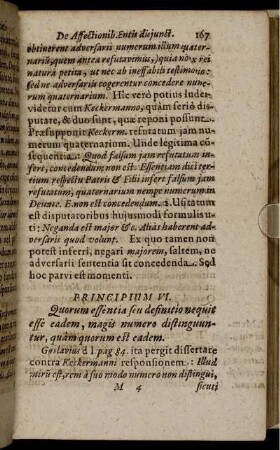 De Affectionib. Entis disjunct. 167
obtinerent adversarii numerum illum quater-
narium, quem antea refutavimus, quia nō x rei
natura petita, ut nec ab ineffabili testimonio:
sed ne adversariis cogerentur concedere nume-
rum quaternarium. Hîc verò potiùs ludere
videtur cum Keckermanno, quàm seriò dispu-
tare, & duo sunt, quæ reponi possunt. 1.
Præsupponit Keckerm. refutatum jam nu-
merum quaternarium. Unde legitima cō-
sequentia: Quod falsum jam refutatum in-
fert, concedendum non est: Essentiam dici ter-
tium respectu Patris & Filii infert falsum jam
refutatum, quaternarium nempe numerum in
Deitate. E. non est concedendum. 2. Usitatum
est disputatoribus hujusmodi formulis uti:
Neganda est major &c. Aliàs haberent ad-
versarii quod volunt. Ex quo tamen non
potest inferri, negari majorem, saltem, ne
adversarii sententia sit concedenda. Sed
hoc parvi est momenti.
PRINCIPIUM VI.
Quorum essentia seu definitio nequit
esse eadem, magis numero distinguun-
tur, quàm quorum est eadem.
Guslavius d l. pag. 84. ita pergit dissertare
contra Keckermanni responsionem: Illud
mirū est, rem à suo modo numero non distingui,
M 4 sicuti